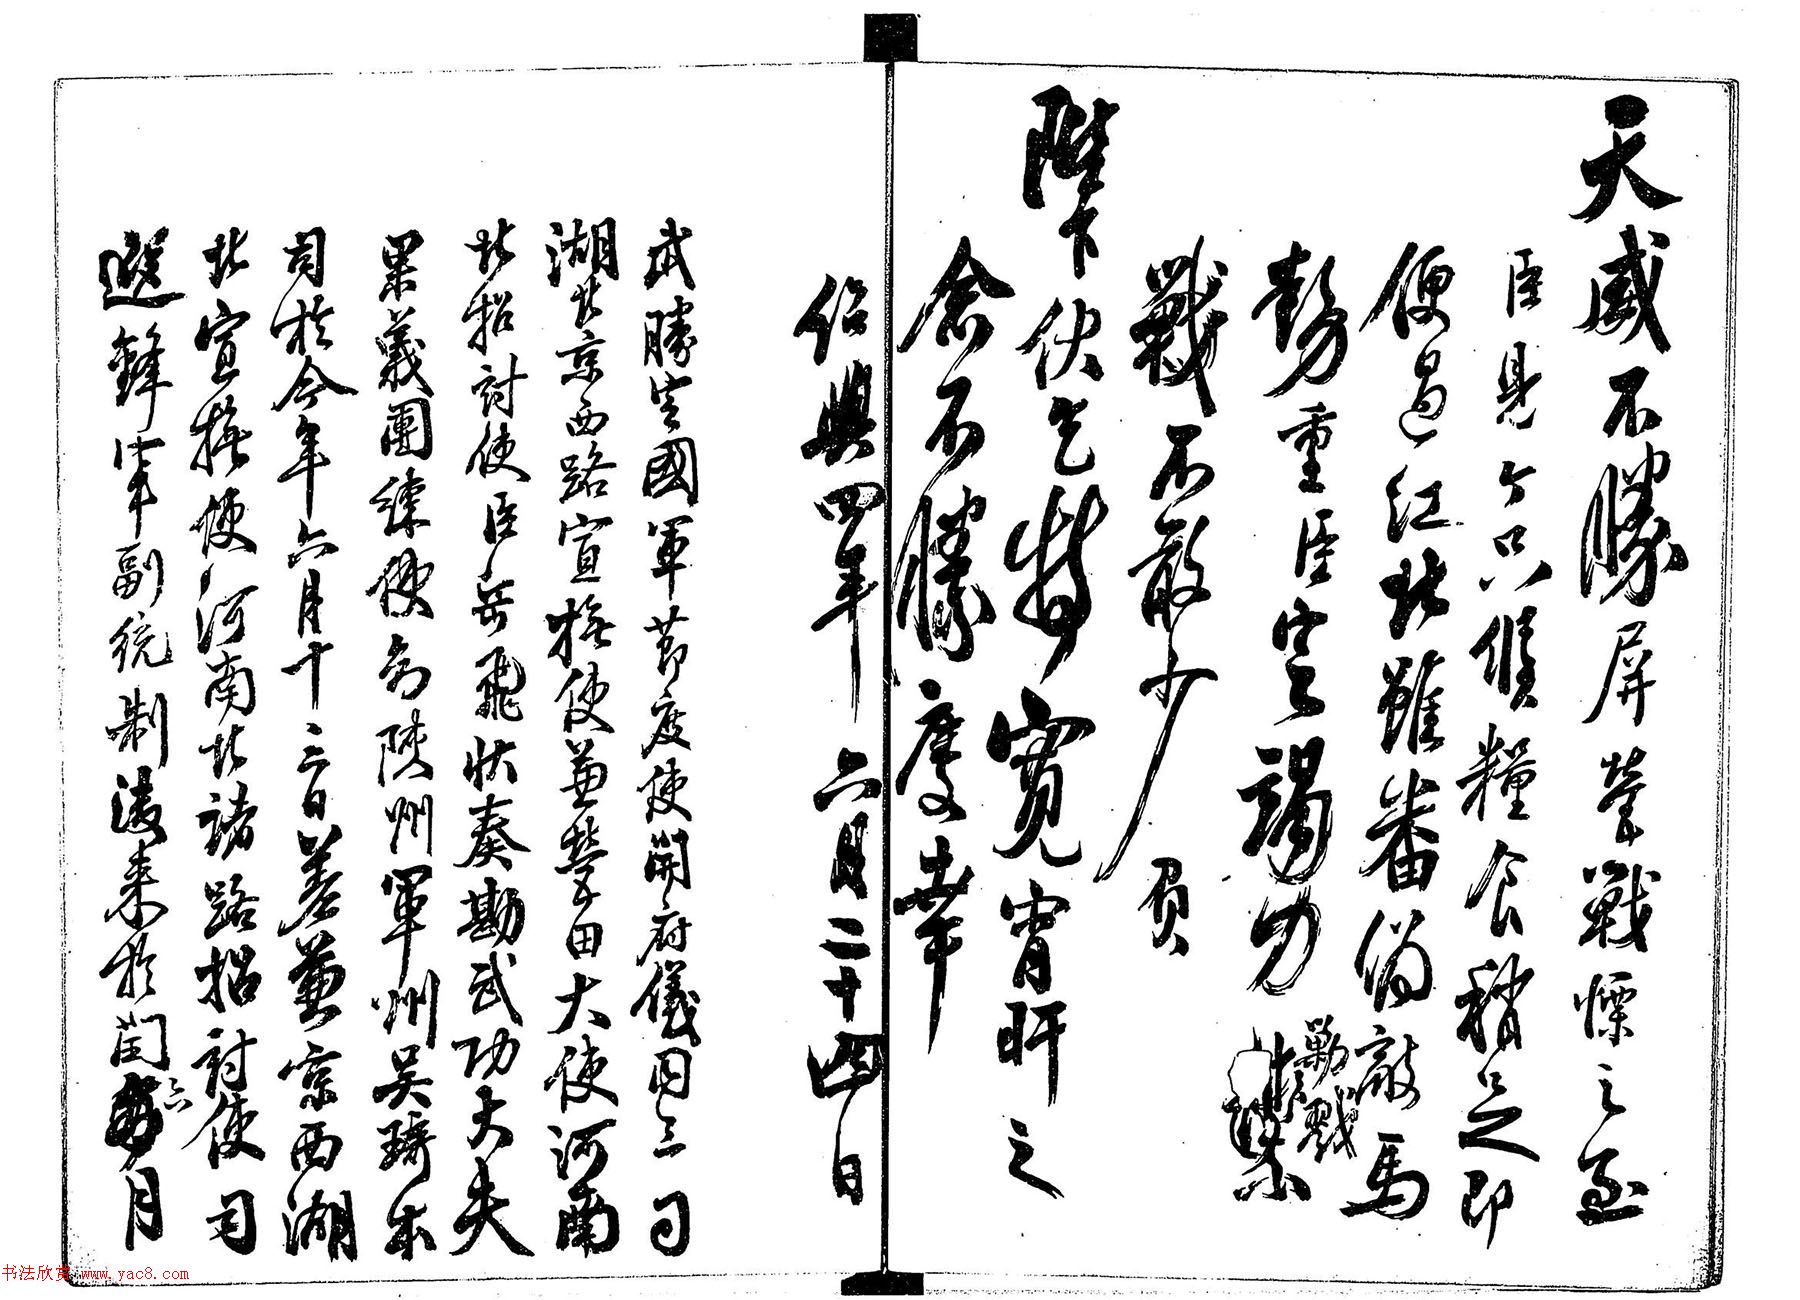 天威不勝屏營戰慄之至
臣見今只候糧食稍足即
便過江北雖番偽敵馬
勢重臣定竭力
勦戮
戰不敢少負
陛下伏乞特寬宵旰之
念不勝慶幸
紹興四年六月二十四日
武勝定國軍節度使開府儀同三司
湖北京西路宣撫使兼營田大使河南
北招討使臣岳飛狀奏勘武功大夫
果義團練使知陝州軍州吳琦本
司於今年六月十三日差兼京西湖
北宣撫使河南北諸路招討使司
選鋒軍副統制後來於閏六月
书法欣赏 www.yac8.com